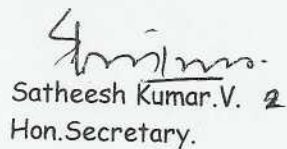 Satheesh Kumar.V. 2
Hon.Secretary.